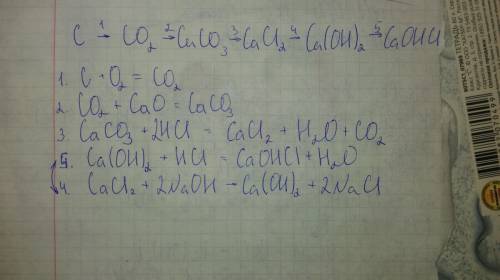 C →1 CO₂ →2 CaCO₃ →3 CaCl₂ →4 Ca(OH)₂ →5 CaOHCl
1. C + O₂ = CO₂
2. CO₂ + CaO = CaCO₃
3. CaCO₃ + 2HCl = CaCl₂ + H₂O + CO₂
5. Ca(OH)₂ + HCl = CaOHCl + H₂O
4. CaCl₂ + 2NaOH → Ca(OH)₂ + 2NaCl